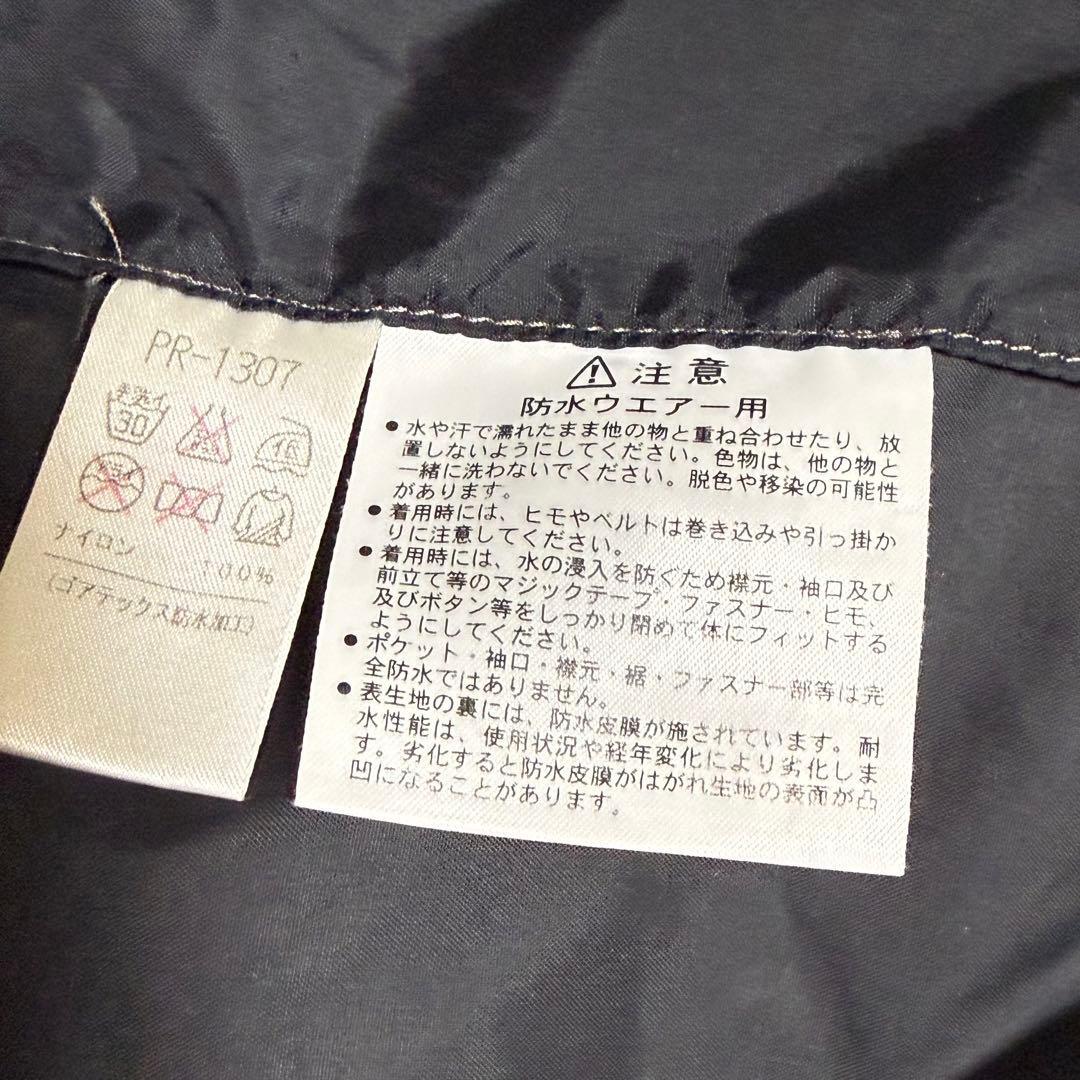 PR-1307
手洗イ
30
ナイロン 100%
(ゴアテックス防水加工)
注意
防水ウエアー用
●水や汗で濡れたまま他の物と重ね合わせたり、放
置しないようにしてください。色物は、他の物と
一緒に洗わないでください。脱色や移染の可能性
があります。
●着用時には、ヒモやベルトは巻き込みや引っ掛か
りに注意してください。
●着用時には、水の浸入を防ぐため襟元・袖口及び
前立て等のマジックテープ・ファスナー・ヒモ、
及びボタン等をしっかり閉めて体にフィットする
ようにしてください。
●ポケット・袖口・襟元・裾・ファスナー部等は完
全防水ではありません。
●表生地の裏には、防水皮膜が施されています。耐
水性能は、使用状況や経年変化により劣化しま
す。劣化すると防水皮膜がはがれ生地の表面が凸
凹になることがあります。